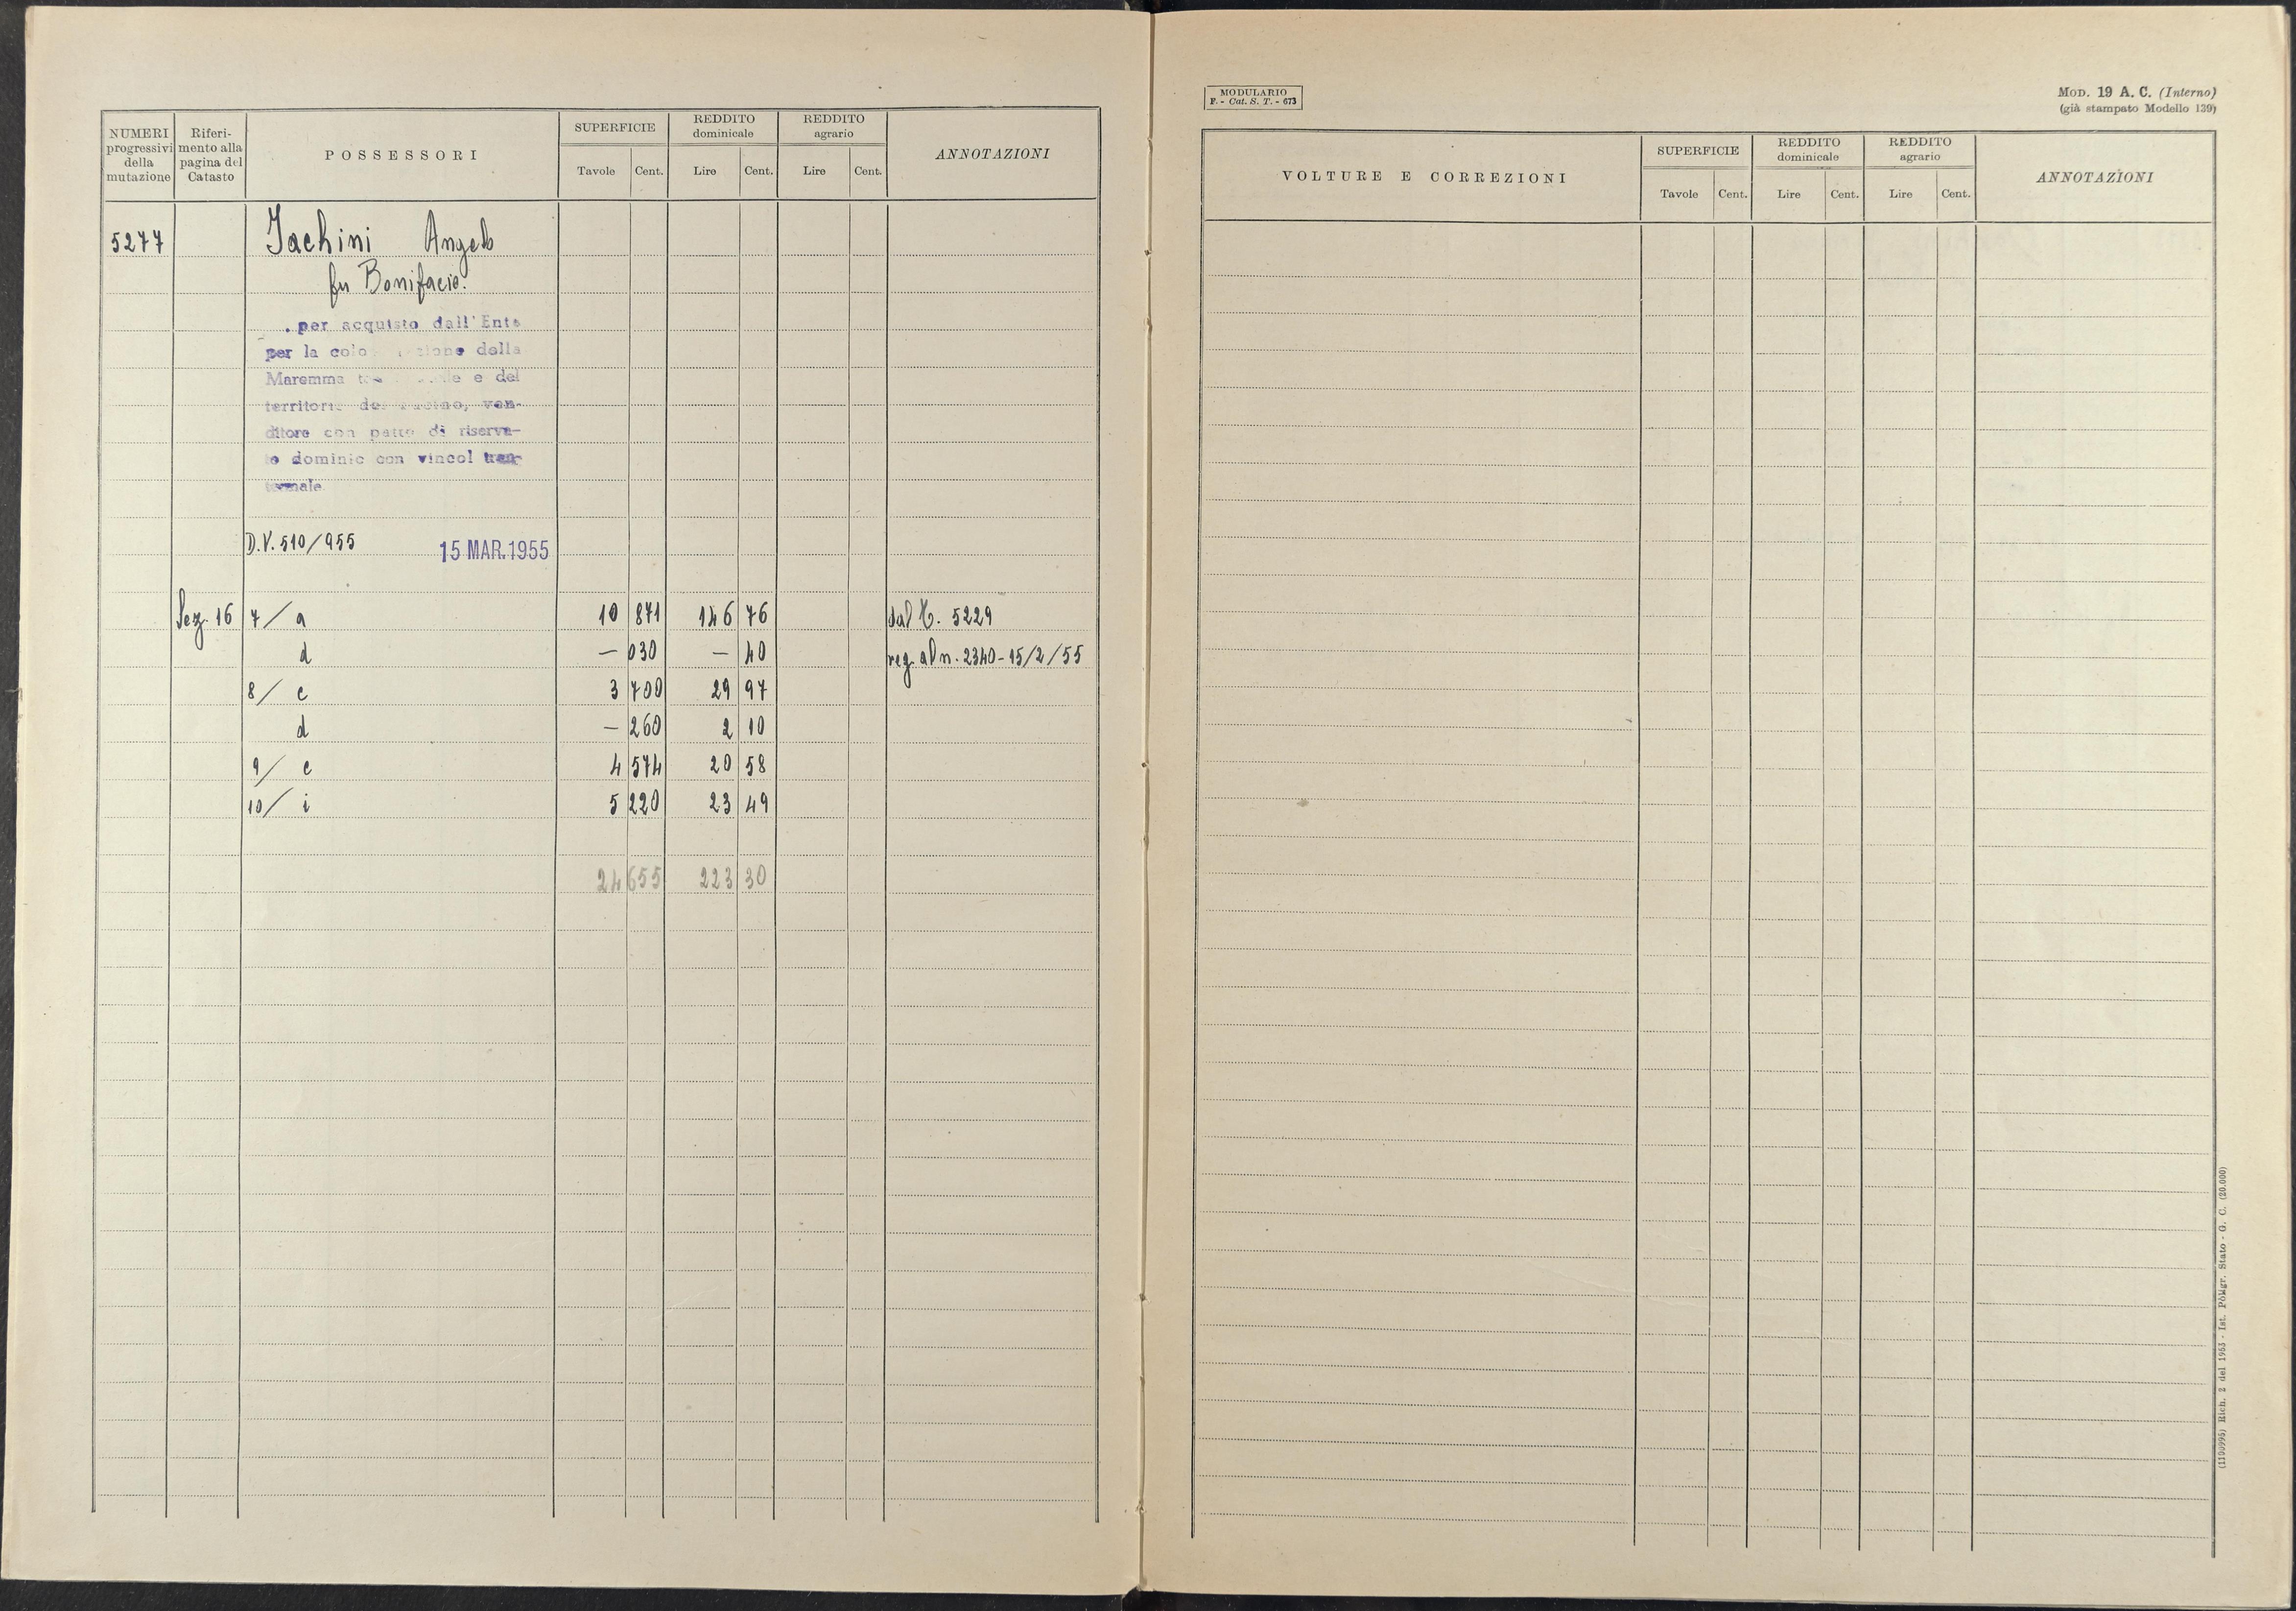 NUMERI progressivi della mutazione
Riferi- mento alla pagina del Catasto
POSSESSORI
SUPERFICIE
Tavole Cent.
REDDITO dominicale
Lire Cent.
REDDITO agrario
Lire Cent.
ANNOTAZIONI
5277 Iachini Angelo
fu Bonifacio.
per acquisto dall'Ente
per la della
Maremma e del
territorio del ven-
ditore con patto di riserva-
to dominio con vincol tren-
tennale
D.V. 510/955 15 MAR.1955
Sez. 16 7/ a 10 871 146 76 dal C. 5229
d — 030 — 40 reg. al n. 2340-15/2/55
8/ c 3 700 29 97
d — 260 2 10
9/ c 4 574 20 58
10/ i 5 220 23 49
24 655 223 30
MODULARIO
F. - Cat. S. T. - 673
MOD. 19 A. C. (Interno)
(già stampato Modello 139)
VOLTURE E CORREZIONI
SUPERFICIE
Tavole Cent.
REDDITO dominicale
Lire Cent.
REDDITO agrario
Lire Cent.
ANNOTAZIONI
(1100995) Rich. 2 del 1953 - Ist. Poligr. Stato - G. C. (20.000)